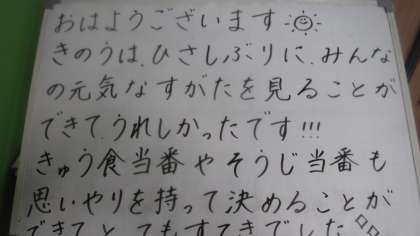 おはようございます
きのうは、ひさしぶりに、みんな
の元気なすがたを見ることが
できて、うれしかったです!!!
きゅう食当番やそうじ当番も
思いやりを持って決めることが
できてとってもすてきでした